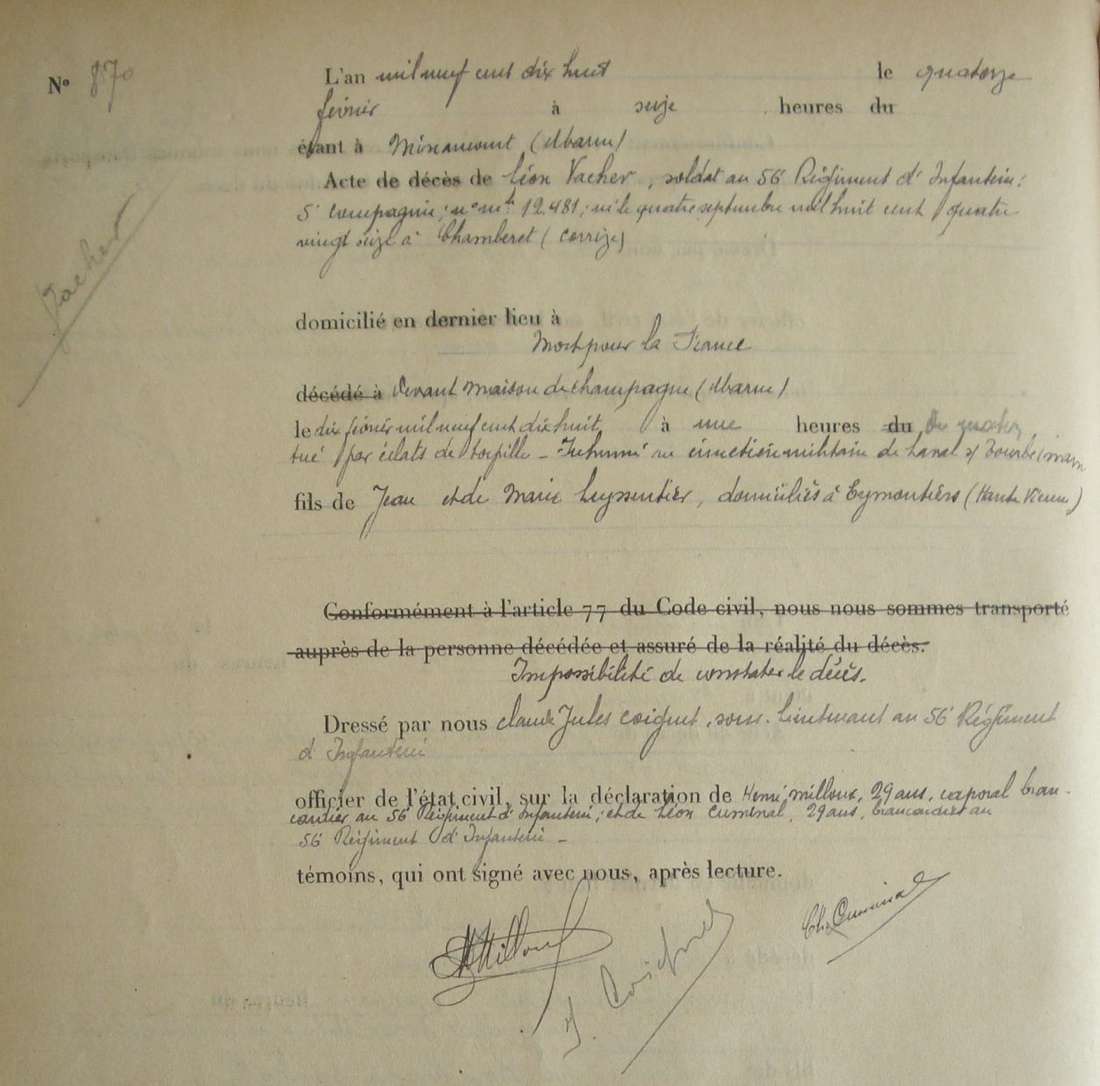 N° 870
L'an mil neuf cent dix huit le quatorze
février à seize heures du
étant à Minaucourt (Marne)
Acte de décès de Léon Vacher, soldat au 56e Régiment d'Infanterie;
5e compagnie; n° mle 12.481; né le quatre septembre mil huit cent quatre
vingt seize à Chamberet (Corrèze)
Vacher
domicilié en dernier lieu à
Mort pour la France
décédé à Devant Maison de Champagne (Marne)
le dix février mil neuf cent dix huit, à une heures du
tué par éclats de torpille - Inhumé au cimetière militaire de
fils de Jean et de Marie, domiciliés à Eymoutiers (Haute Vienne)
Conformément à l'article 77 du Code civil, nous nous sommes transporté
auprès de la personne décédée et assuré de la réalité du décès.
Impossibilité de constater le décès.
Dressé par nous Claude Jules Coignet, sous-Lieutenant au 56e Régiment
d'Infanterie
officier de l'état civil, sur la déclaration de Henri Milloux, 29 ans, caporal bran-
cardier au 56e Régiment d'Infanterie; et de Léon Cuminal, 29 ans, brancardier au
56e Régiment d'Infanterie -
témoins, qui ont signé avec nous, après lecture.
J. Coignet
Cuminal